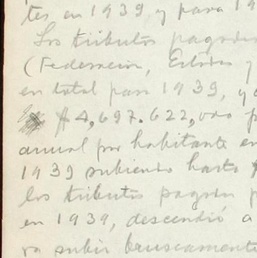 tes, en 1939, y para 19
Los tributos pagados
(Federación, Estados y
en total para 1939, y a
$ 4,697.622,000 p
anual por habitante en
1939 subiendo hasta $
los tributos pagados p
en 1939, descendió a
ra subir bruscamente